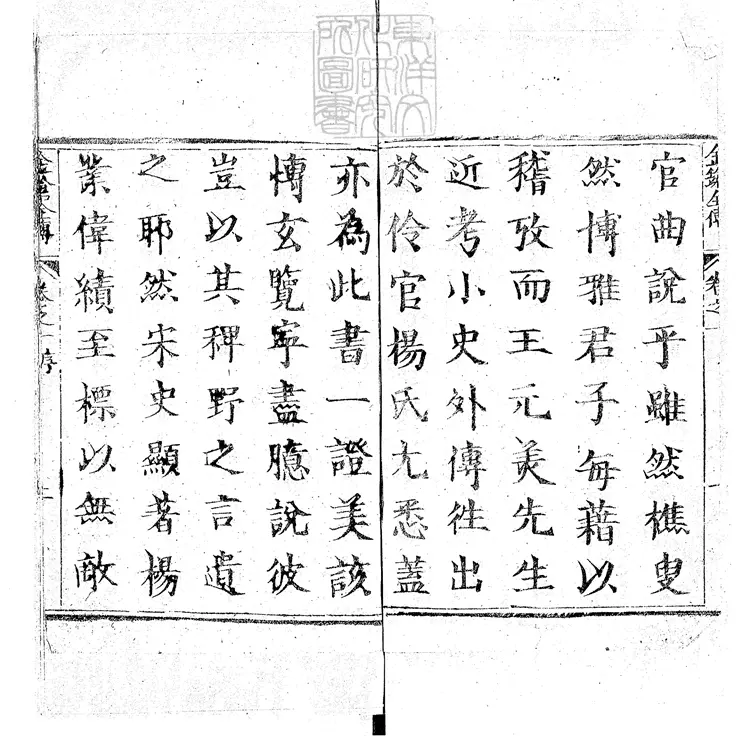 官曲說乎雖然樵叟
然博雅君子每藉以
稽攷而王元美先生
近考小史外傳徃出
於伶官楊氏尤悉蓋
亦為此書一證美該
愽玄覽寜盡臆說彼
豈以其稗野之言遺
之耶然宋史顯著楊
業偉績至標以無敵
卷之一
卷之一序
東洋文
化研究
所圖書